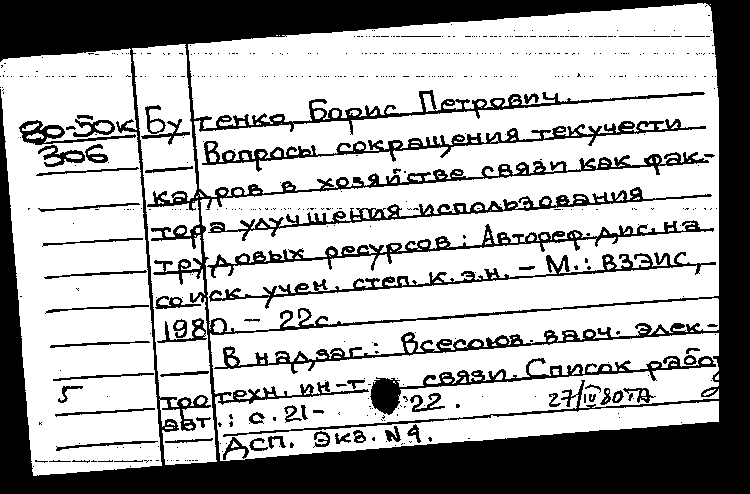 80-50к Бутенко, Борис Петрович.
306 Вопросы сокращения текучести
кадров в хозяйстве связи как фак-
тора улучшения использования
трудовых ресурсов: Автореф. дис. на
соиск. учен. степ. к.э.н. – М.: ВЗЭИС,
1980. – 22с.
В надзаг.: Всесоюз. заоч. элек-
5 тротехн. ин-т связи. Список работ
авт.: с. 21-22. 27/IV80
ДСП. Экз. N4.